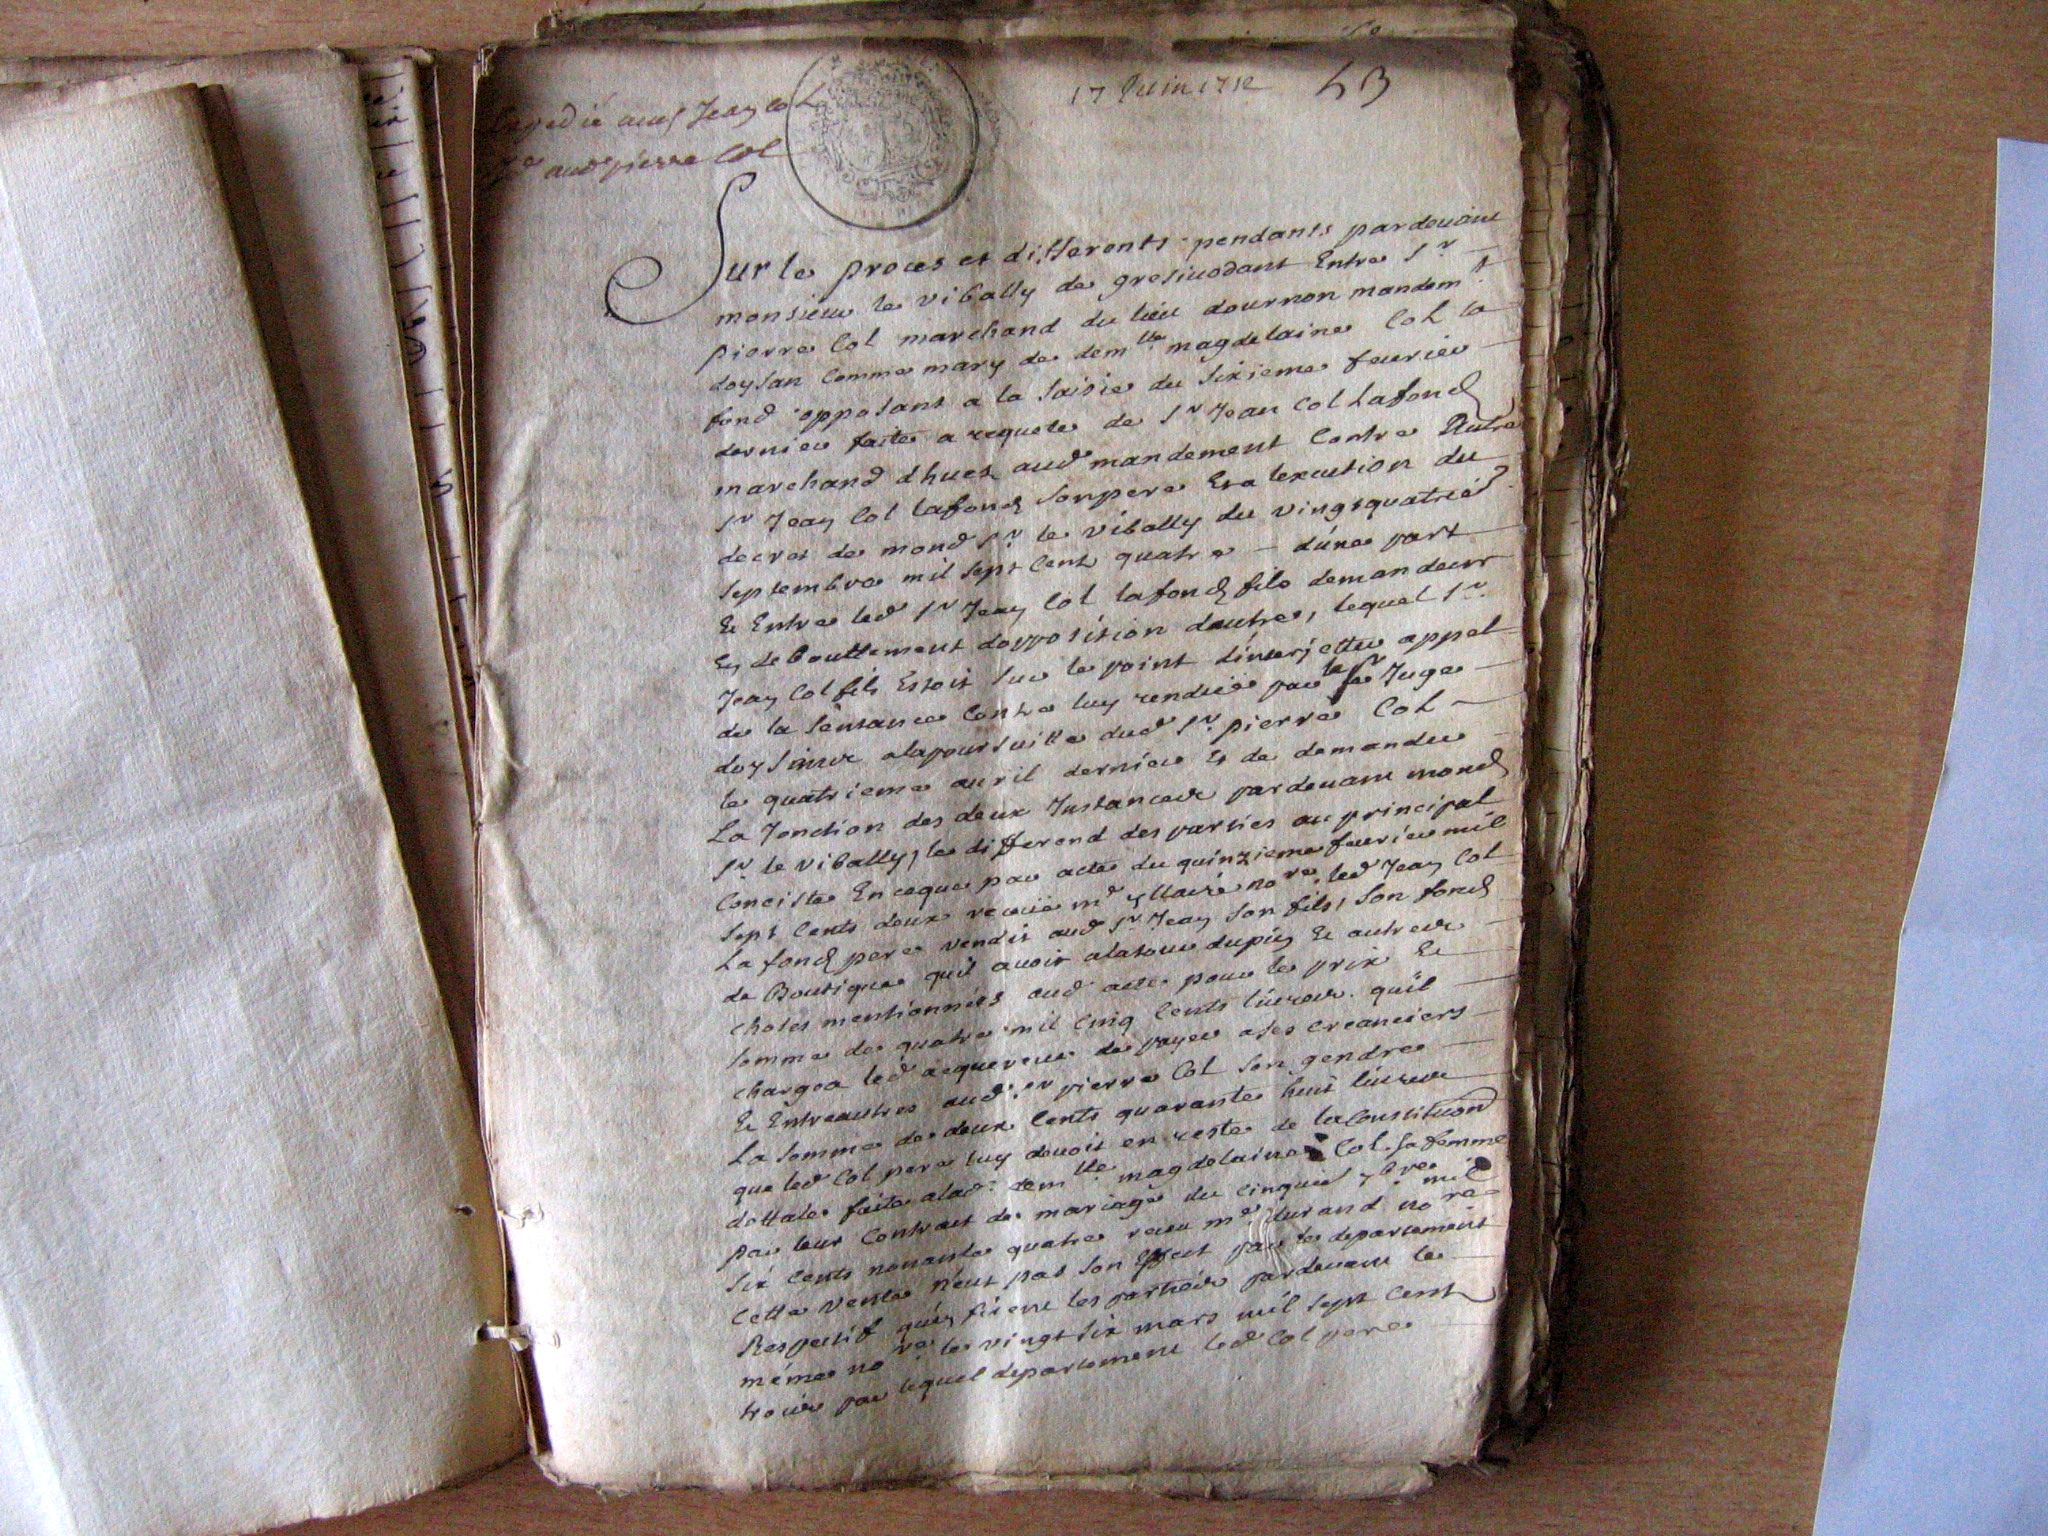 17 Juin 1712 43
Expedié aud Sr Jean Col
aud pierre Col
Sur le proces et differents pendants pardeuant
monsieur le vibally de gresiuodant Entre Sr
pierre Col marchand du lieu dournon mandemt
doysan Comme mary de demlle magdelaine Col la
fond opposant a la saisie du sixieme feurier
dernier faite a requete de Sr Jean Col Lafond
marchand dhuez aud mandement Contre Autre
Sr Jean Col lafond son pere Et a lexecution du
decret de mond Sr le vibally du vingtquatrie
septembre mil sept Cent quatre dune part
Et Entre led Sr Jean Col lafond fils demandeur
En debouttement dopposition dautre, lequel Sr
Jean Col fils Estoit sur le point dinterjetter appel
de la sentance Contre luy rendue par le Sr Juge
doysans alapoursuitte dud Sr pierre Col
le quatrieme auril dernier Et de demander
La Jonction des deux Instances pardeuant mond
Sr le vibally, le differend des parties au principal
Conciste En ceque par acte du quinzieme feurier mil
sept Cents deux receu me nore led Jean Col
La fond pere vendit aud Sr Jean son fils, son fond
de Boutique quil auoit alatour dupin Et autres
choses mentionnées aud acte pour le prix Et
somme de quatre mil Cinq Cents liures quil
chargea led acquereur de payer ases creanciers
Et Entreautres aud Sr pierre Col son gendre
La somme de deux Cents quarante huit liures
que led Col pere luy deuoit en reste de la Constituon
dottale faite alad demlle magdelaine Col sa femme
par leur Contract de mariage du cinquie 7bre mil
six Cents nonante quatre receu me durand nore
Cette vente neut pas son Effect par le departement
Respectif quen firent les parties pardeuant le
méme nore le vingt six mars mil sept Cent
trois par lequel departement led Col pere